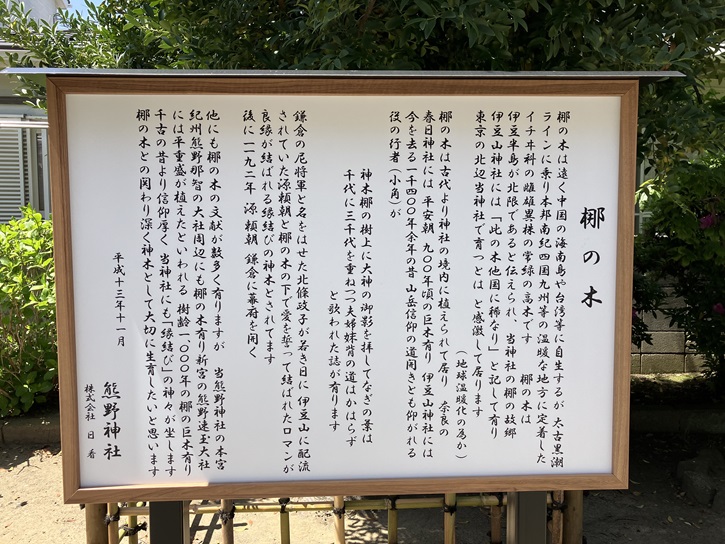 梛の木
梛の木は遠く中国の海南島や台湾等に自生するが 太古黒潮
ラインに乗り本邦南紀四国九州等の温暖な地方に定着した
イチヰ科の雌雄異株の常緑の高木です 梛の木は
伊豆半島が北限であると伝えられ、当神社の梛の故郷
伊豆山神社には「此の木他国に稀なり」と記して有り
東京の北辺当神社で育つとは と感激して居ります
(地球温暖化の為か)
梛の木は古代より神社の境内に植えられて居り 奈良の
春日神社には 平安朝 九〇〇年頃の巨木有り 伊豆山神社には
今を去る一千四〇〇年余年の昔 山岳信仰の道開きとも仰がれる
役の行者(小角)が
神木梛の樹上に大神の御影を拝してなぎの葉は
千代に三千代を重ねつつ夫婦妹背の道はかはらず
と歌われた誌が有ります
鎌倉の尼将軍と名をはせた北條政子が若き日に伊豆山に配流
されていた源頼朝と梛の木の下で愛を誓って結ばれたロマンが
良縁が結ばれる縁結びの神木とされてます
後に一一九二年 源頼朝 鎌倉に幕府を開く
他にも梛の木の文献が数多く有りますが 当熊野神社の本宮
紀州熊野那智の大社周辺にも梛の木有り新宮の熊野速玉大社
には平重盛が植えたといわれる 樹齢一、〇〇〇年の梛の巨木有り
千古の昔より信仰厚く 当神社にも「縁結び」の神々が坐します
梛の木との関わり深く神木として大切に生育したいと思います
平成十三年十一月
熊野神社
株式会社 日看